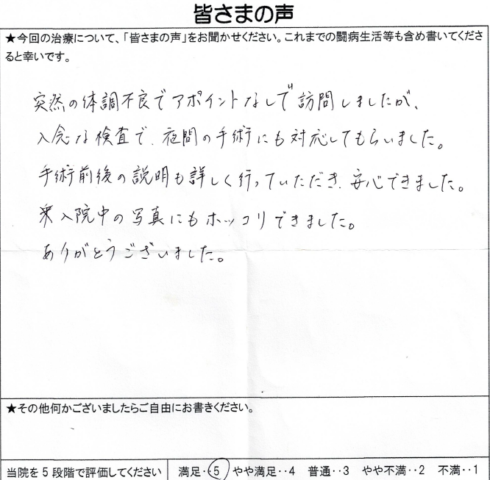 皆さまの声
★今回の治療について、「皆さまの声」をお聞かせください。これまでの闘病生活等も含め書いてくださ
ると幸いです。
突然の体調不良でアポイントなしで訪問しましたが、
入念な検査で、夜間の手術にも対応してもらいました。
手術前後の説明も詳しく行っていただき、安心できました。
入院中の写真にもホッコリできました。
ありがとうございました。
★その他何かございましたらご自由にお書きください。
当院を5段階で評価してください 満足‥5 やや満足‥4 普通‥3 やや不満‥2 不満‥1